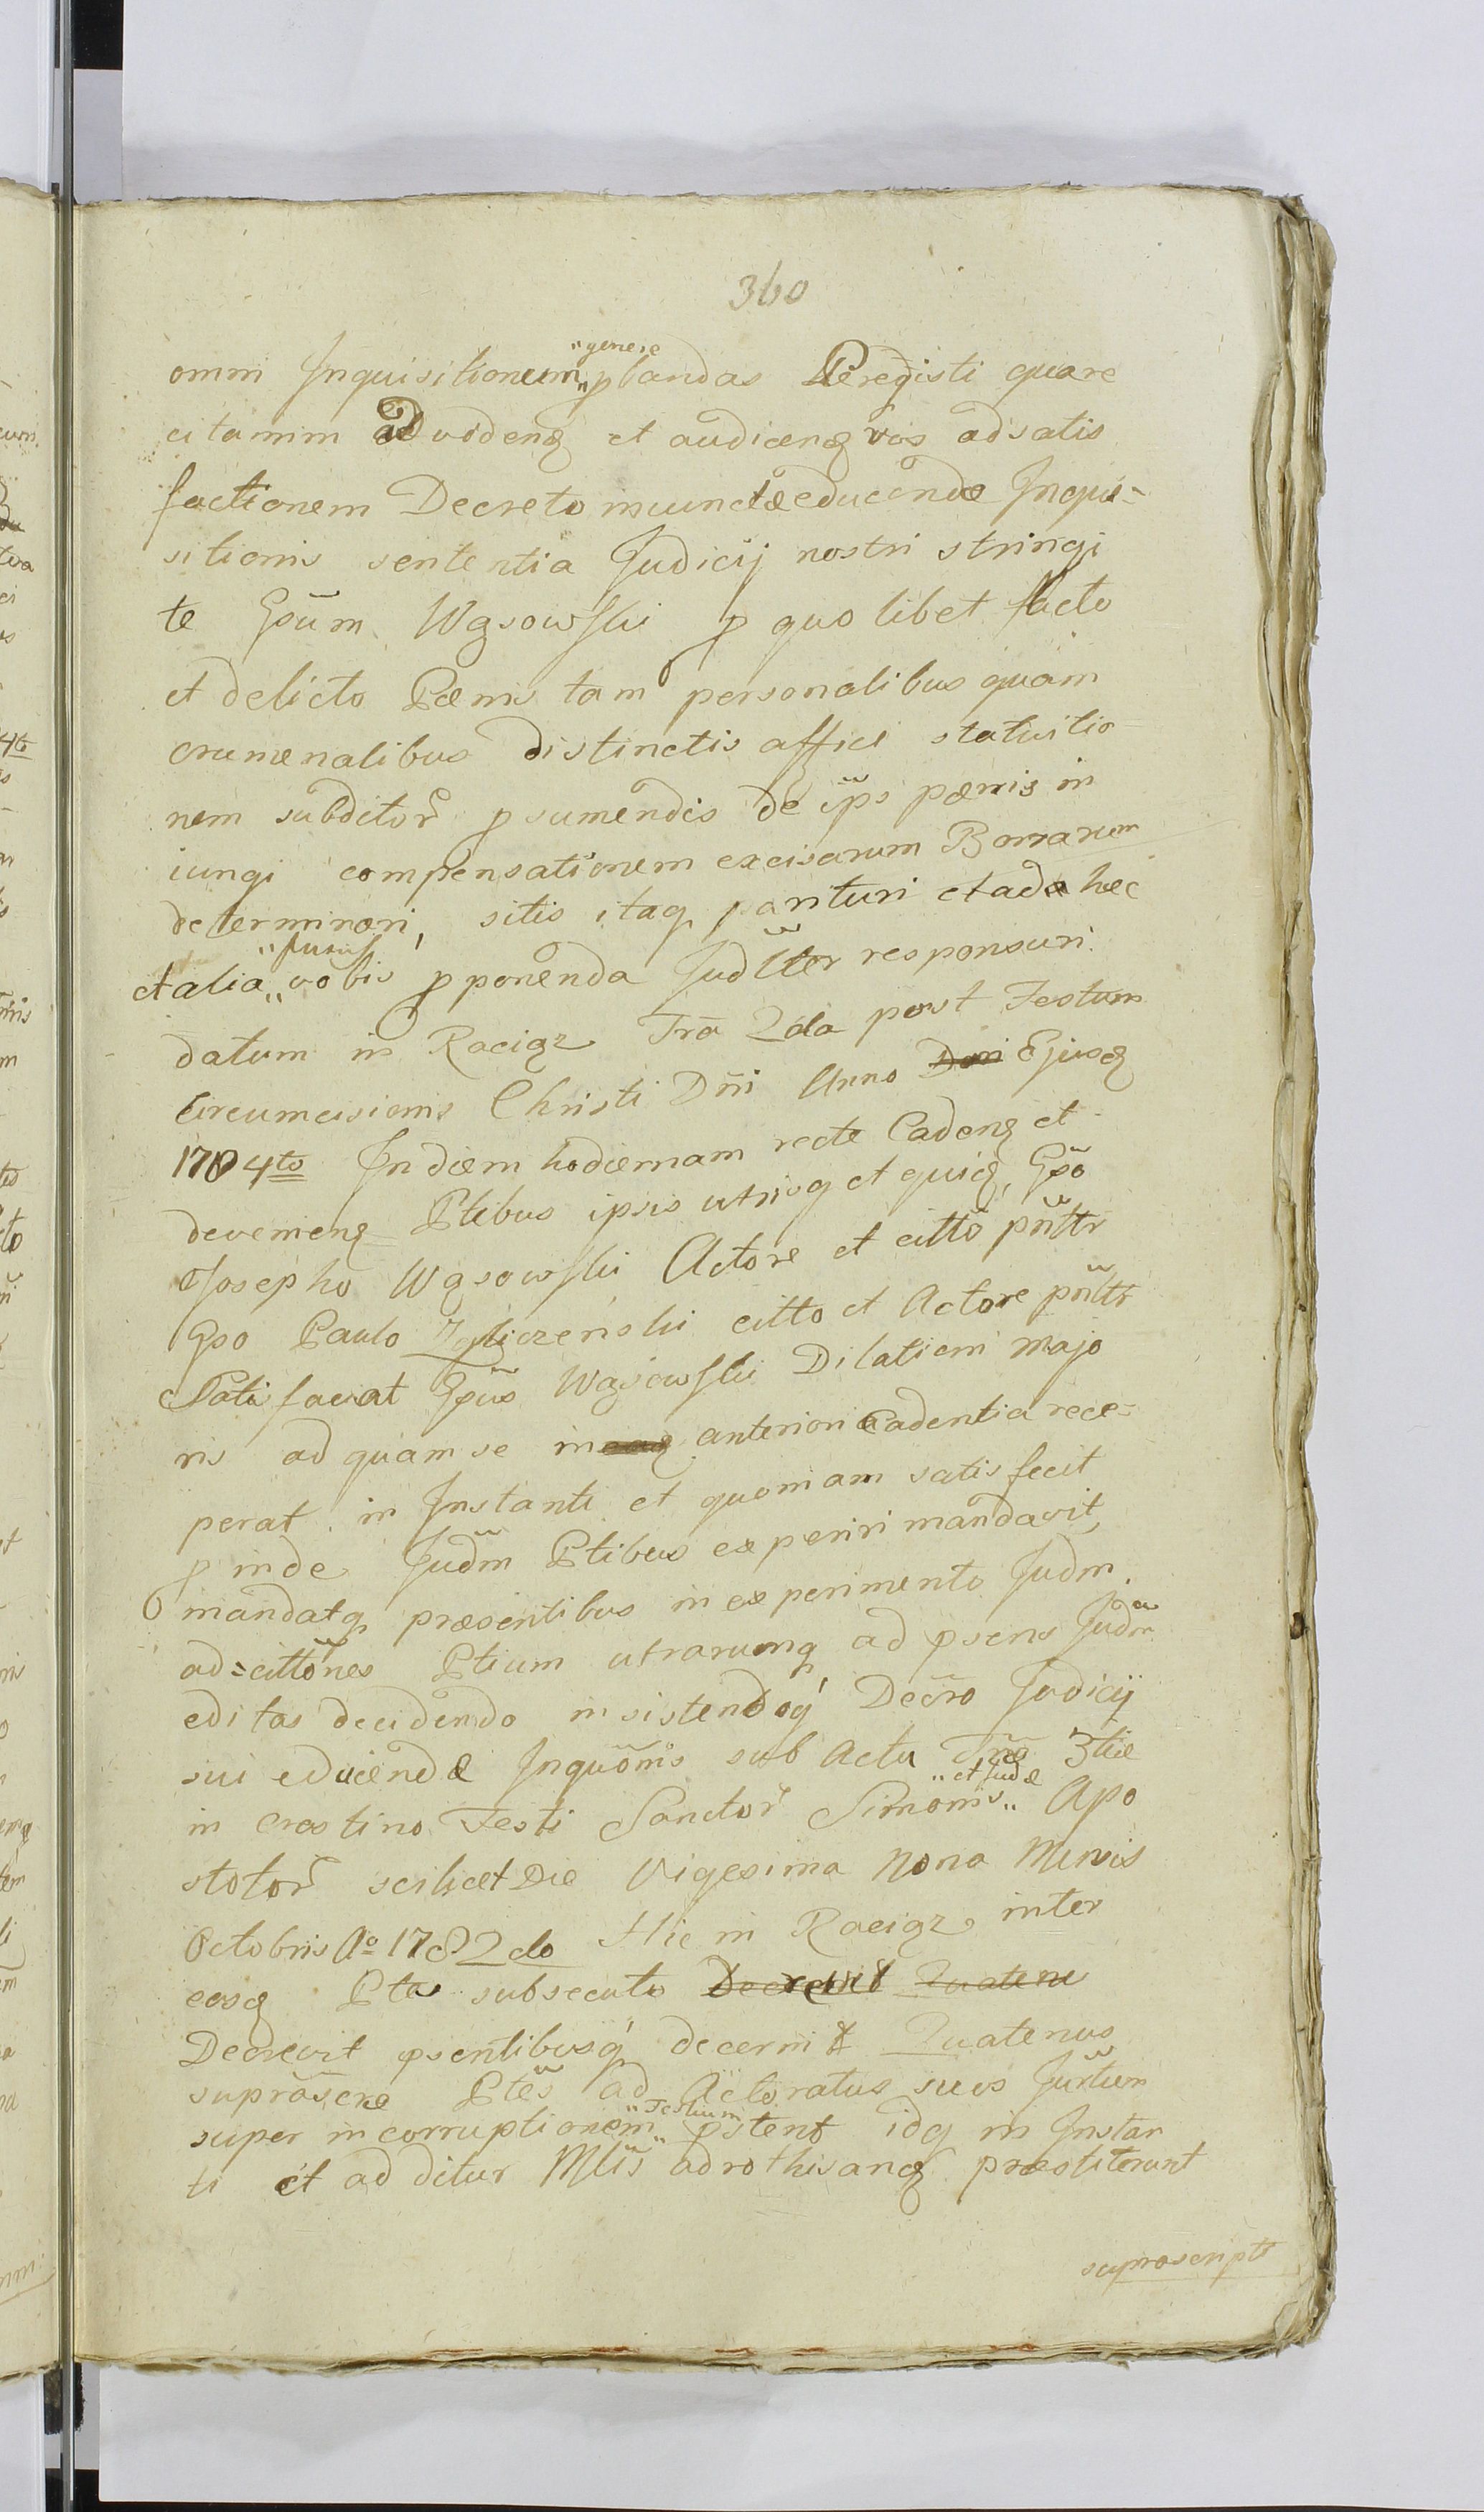 360
omni Inquisitionum „genere„ pbandas Peregisti quare
citamini ad vidend et audiend vos ad satis
factionem Decreto iniunctæ educendæ Inqui-
sitionis sententia Judicij nostri stringi
te Gsum Wąsowski p quo libet facto
et delicto Pænis tam personalibus quam
crumenalibus distinctis affici statuitio
nem subditor p sumendis de ips pænis in
iungi compensationem excisarum Borrarum
determinari, sitis itaq parituri et ad hæc
et alia „fusius„ vobis pponenda Judltter responsuri
datum in Raciąz Fra 2da post Festum
Circumcisionis Christi Dni Anno Dni Ejusd
1784to In diem hodiernam recte Cadend et
deveniend Ptibus ipsis utrisq et quid, Gso
Josepho Wąsowski Actore et citto pnttr
Gso Paulo Zgliczeński citto et Actore pnttr
Satisfaciat Gsus Wąsowski Dilationi majo
ris ad quam se in ead anteriori Cadentia rece-
perat in Instanti et quoniam satis fecit
p inde Judm Ptibus experiri mandavit,
mandatq præsentibus in experimento Judm
ad cittones Ptium utrarumq ad psens Judm
editas decidendo insistendoq Decro Judicij
sui educendæ Inquonis sub Actu Fræ 3tiæ
in Crastino Festi Sanctor Simonis „et Judæ„ Apo
stolor scilicet Die Vigesima Nona Mensis
Octobris Ao 1782do Hic in Raciąz inter
easd Ptes subsecuto Decrevit Quatenu
Decrevit psentibusq decernit Quatenus
suprascræ Ptes ad Actoratus suos Jurtum
super incorruptionem „Testium„ pstent idq in Instan
ti et ad ditur Mtis ad rothisand præstiterunt
suprascripti